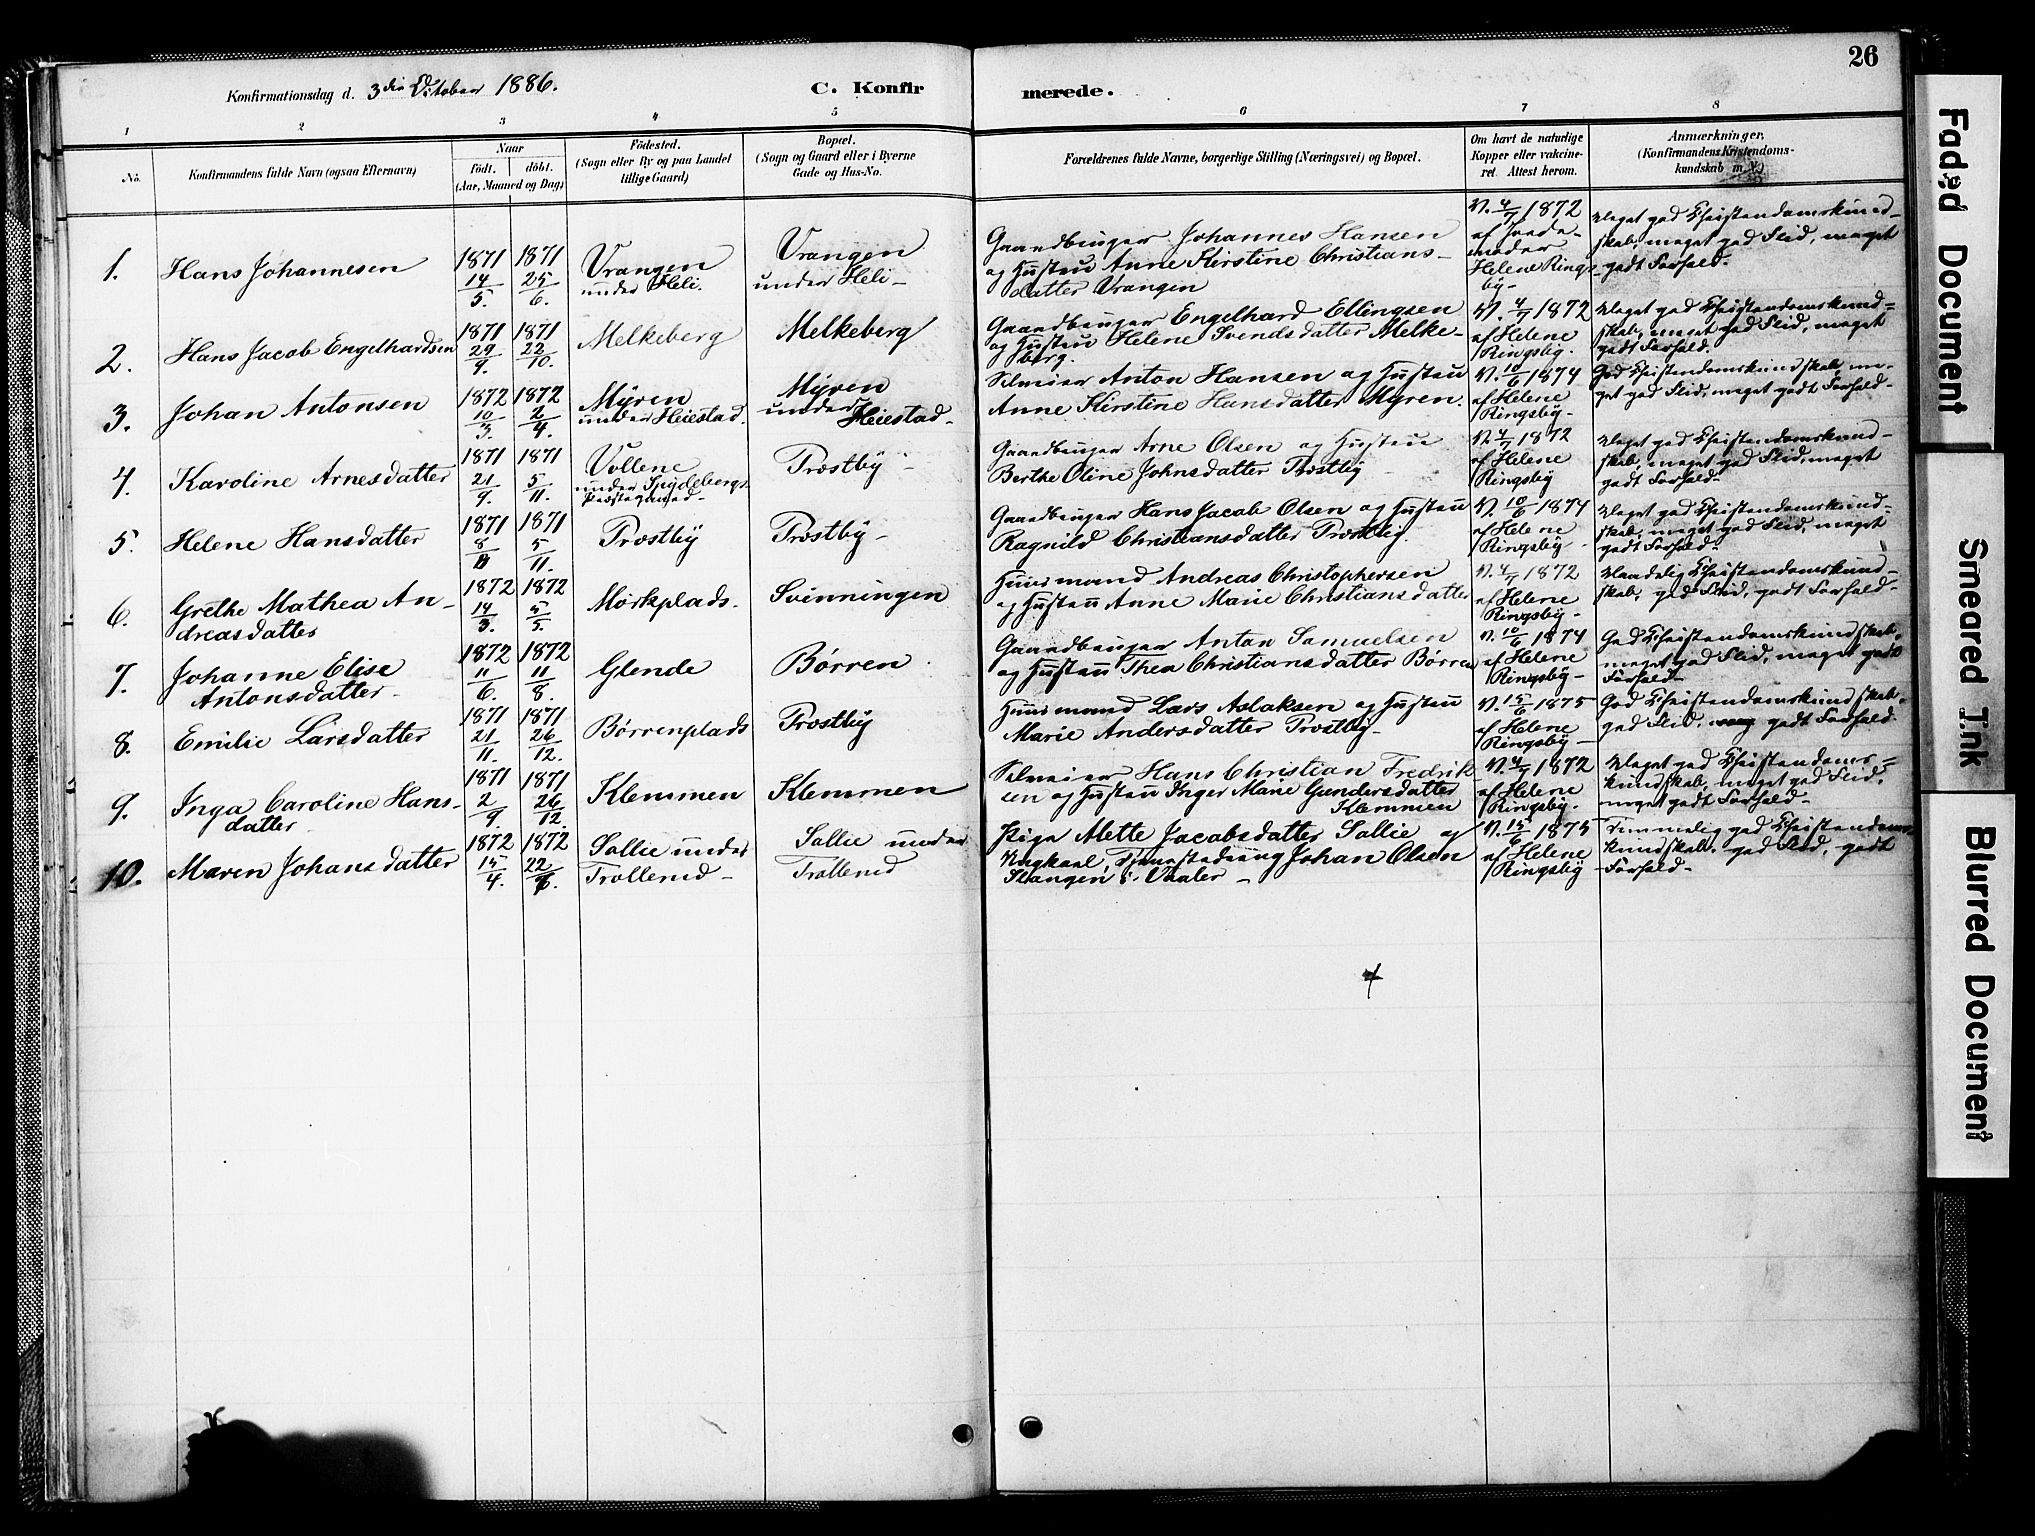 26
Konfirmationsdag d. 3die October 1886.
C. Konfirmerede.
1 2 3 4 5 6 7 8
No.
Konfirmandens fulde Navn (ogsaa Efternavn)
Naar
født. døbt.
(Aar, Maaned og Dag)
Fødested.
(Sogn eller By og paa Landet
tillige Gaard)
Bopæl.
(Sogn og Gaard eller i Byerne
Gade og Hus-No.
Forældrenes fulde Navne, borgerlige Stilling (Næringsvei) og Bopæl.
Om havt de naturlige
Kopper eller vakcine-
ret. Attest herom.
Anmærkninger.
(Konfirmandens Kristendoms-
kundskab m. V.)
1. Hans Johannesen
1871 14/5. 1871 25/6.
Vrangen
under Heli.
Vrangen
under Heli-
Gaardbruger Johannes Hansen
og Hustru Anne Kirstine Christians-
datter Vrangen
V. 4/7 1872
af Jorde-
moder
Helene Rings-
by-
Meget god Christendomskund-
skab, meget god Flid, meget
godt Forhold.
2. Hans Jacob Engelhardsen
1871 29/9. 1871 22/10.
Melkeberg
Melkeberg
Gaardbruger Engelhard Ellingsen
og Hustru Helene Svendsdatter Melke-
berg.
V. 4/7 1872
af Helene
Ringsby.
Meget god Christendomskund=
skab, meget god Flid, meget
godt Forhold.
3. Johan Antonsen
1872 10/3. 1872 2/4.
Myren
under Heiestad.
Myren
under
Heiestad-
Selveier Anton Hansen og Hustru
Anne Kirstine Hansdatter Myren.
V. 10/6 1874
af Helene
Ringsby-
God Christendomskundskab, me-
get god Flid, meget godt Forhold-
4. Karoline Arnesdatter
1871 21/9. 1871 5/11.
Vollene
under Spydebergs
Præstegaard-
Præstby-
Gaardbruger Arne Olsen og Hustru
Berthe Oline Johnsdatter Præstby
V. 4/7 1872
af Helene
Ringsby
Meget god Christendomskund-
skab, meget god Flid, meget
godt Forhold-
5. Helene Hansdatter
1871 1871 5/11.
Præstby
Præstby-
Gaardbruger Hans Jacob Olsen og Hustru
Ragnild Christiansdatter Præstby.
V. 10/6 1874
af Helene
Ringsby-
Meget god Christendomskund-
skab, meget god Flid, meget
godt Forhold-
6. Grethe Mathea An-
dreasdatter
1872 14/3. 1872 5/5.
Mørkplads.
Svenningen
Huusmand Andreas Christophersen
og Hustru Anne Marie Christiansdatter
V. 4/7 1872
af Helene
Ringsby-
Maadelig Christendomskund-
skab, god Flid, godt Forhold-
7. Johanne Elise
Antonsdatter-
1872 11/6. 1872 11/8.
Glende
Børren
Gaardbruger Anton Samuelsen
og Hustru Thea Christiansdatter Børren
V. 10/6 1874
af Helene
Ringsby-
God Christendomskundskab,
meget god Flid, meget godt
Forhold-
8. Emilie Larsdatter
1871 21/11. 1871 26/12.
Børrenplads
Præstby
Huusmand Lars Aslaksen og Hustru
Marie Andersdatter Præstby-
V. 15/6 1875
af Helene
Ringsby-
God Christendomskundskab-
god Flid, godt Forhold
9. Inga Caroline Hans-
datter
1871 2/9. 1871 26/12.
Klemmen
Klemmen
Selveier Hans Christian Fredrik-
sen og Hustru Inger Marie Gundersdatter
Klemmen
V. 4/7 1872
af Helene
Ringsby.
Meget god Christendoms=
kundskab, meget god Flid,
meget godt Forhold-
10. Maren Johansdatter
1872 15/4. 1872
Sollie under
Trollerud-
Sollie under
Trollerud
Pige Mette Jacobsdatter Sollie og
Ungkarl, Tjenestedreng Johan Olsen
Stangen i Vaaler-
V. 15/6 1875
af Helene
Ringsby
Temmelig god Christendoms-
kundskab, god Flid, godt
Forhold-
Faded Document
Smeared Ink
Blurred Document